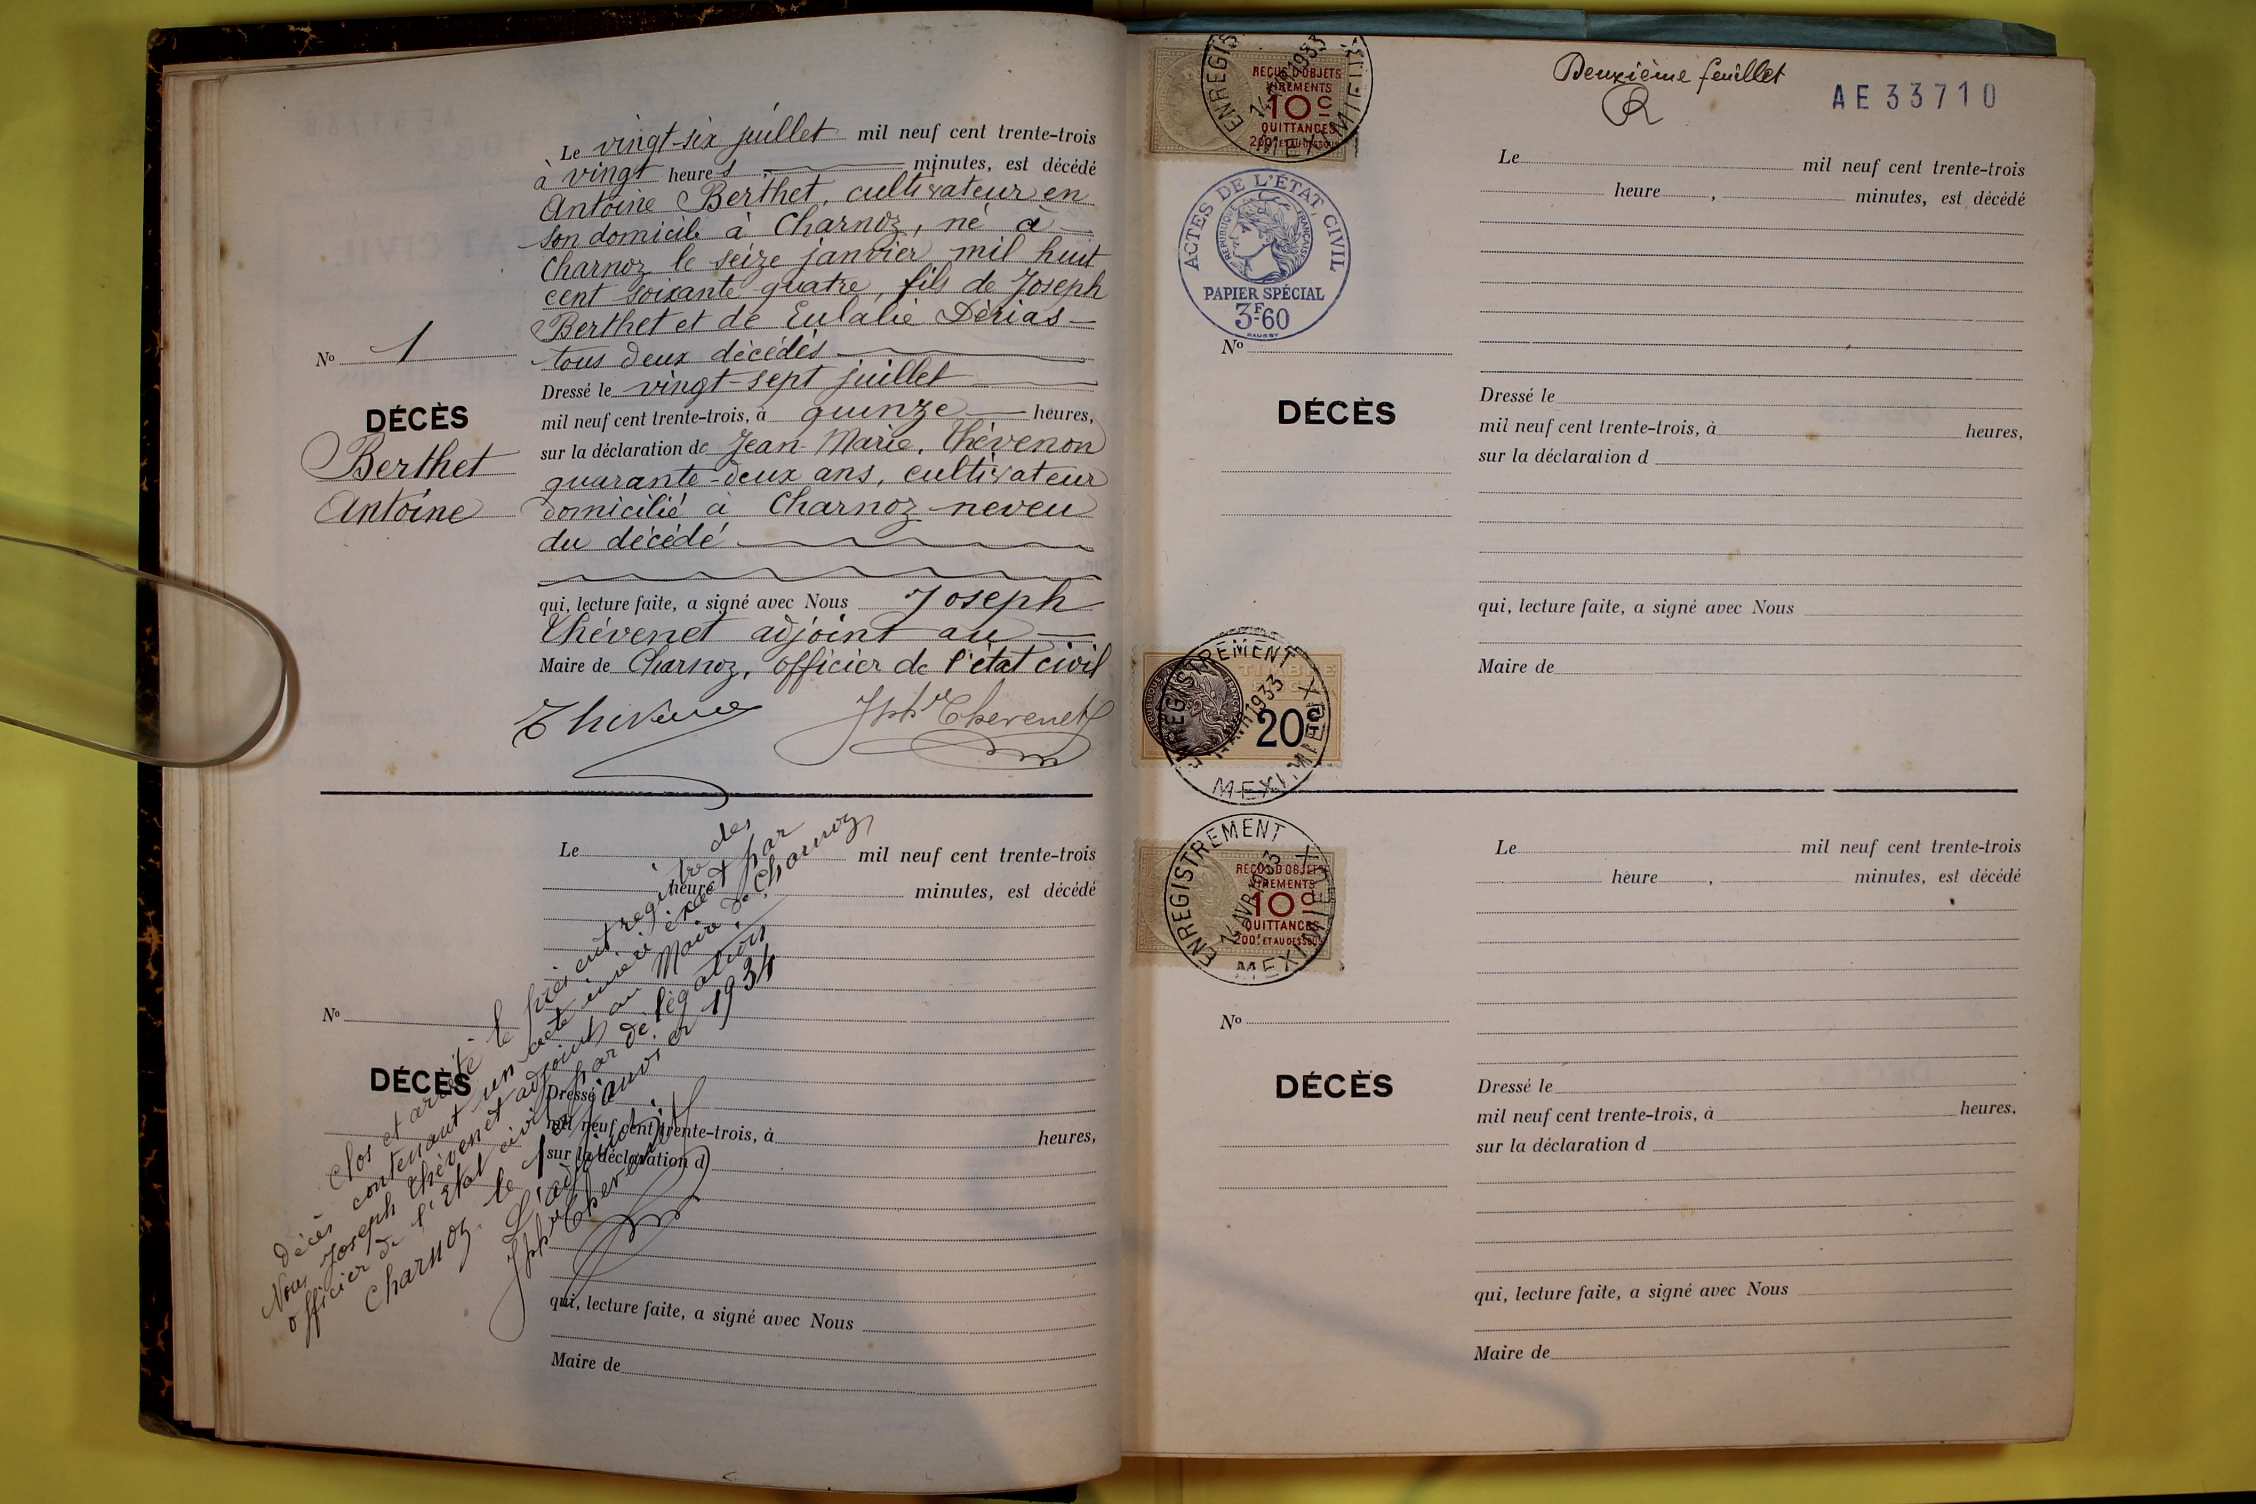 Le vingt-six juillet mil neuf cent trente-trois
à vingt heures, minutes, est décédé
Antoine Berthet, cultivateur en
son domicile à Charnoz, né à
Charnoz le seize janvier mil huit
cent soixante quatre, fils de Joseph
Berthet et de Eulalie Dérias
tous deux décédés
Dressé le vingt-sept juillet
mil neuf cent trente-trois, à quinze heures,
sur la déclaration de Jean Marie Thévenon
quarante-deux ans, cultivateur
domicilié à Charnoz neveu
du décédé
qui, lecture faite, a signé avec Nous Joseph
Thévenet adjoint au
Maire de Charnoz, officier de l'état civil
Jph Thevenet
No 1
DÉCÈS
Berthet
Antoine
Le mil neuf cent trente-trois
heure minutes, est décédé
No
DÉCÈS
Dressé
mil neuf cent trente-trois, à heures,
sur la déclaration d
qui, lecture faite, a signé avec Nous
Maire de
Clos et arrêté le présent registre des
décès contenant un acte inséré et par
Nous Joseph Thévenet adjoint au Maire de Charnoz,
officier de l'état civil par délégation
Charnoz le 1er janvier 1934
L'adjoint
Jph Thevenet
Deuxième feuillet
AE33710
REÇUS D'OBJETS
VIREMENTS
10c
QUITTANCES
200f ET AU DESSOUS
ENREGISTREMENT
AVR 1933
MEXIMIEUX
ACTES DE L'ÉTAT CIVIL
RÉPUBLIQUE FRANÇAISE
PAPIER SPÉCIAL
3F60
Le mil neuf cent trente-trois
heure , minutes, est décédé
No
DÉCÈS
Dressé le
mil neuf cent trente-trois, à heures,
sur la déclaration d
qui, lecture faite, a signé avec Nous
Maire de
ENREGISTREMENT
TIMBRE
20c
AVR 1933
MEXIMIEUX
ENREGISTREMENT
REÇUS D'OBJETS
VIREMENTS
10c
QUITTANCES
200f ET AU DESSOUS
AVR 1933
MEXIMIEUX
Le mil neuf cent trente-trois
heure , minutes, est décédé
No
DÉCÈS
Dressé le
mil neuf cent trente-trois, à heures.
sur la déclaration d
qui, lecture faite, a signé avec Nous
Maire de